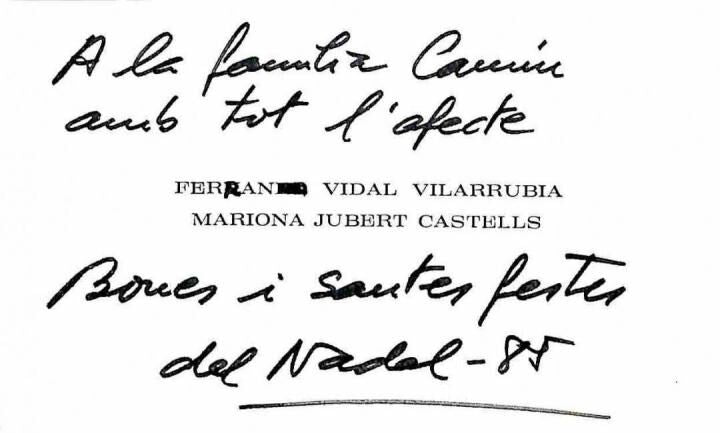 A la familia
amb tot l'afecte
FERRAN VIDAL VILARRUBIA
MARIONA JUBERT CASTELLS
Bones i santes festes
del Nadal - 85